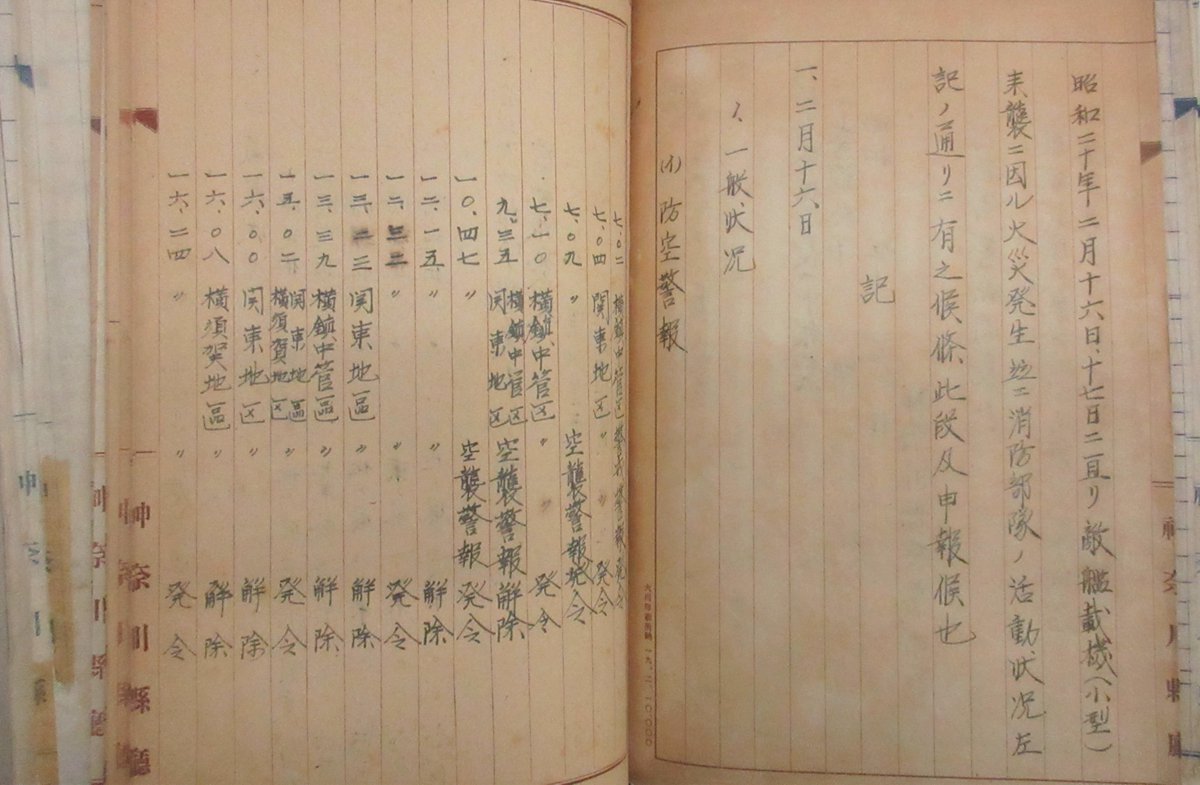 昭和二十年二月十六日、十七日ニ亘リ敵艦載機(小型)
来襲ニ因ル火災発生並ニ消防部隊ノ活動状况左
記ノ通リニ有之候條此段及申報候也
記
一、二月十六日
1、一般状况
(イ)防空警報
七、〇二 横鎮中管区 警戒警報発令
七、〇四 関東地区 〃 発令
七、〇九 〃 空襲警報発令
七、一〇 横鎮中管区 〃 発令
九、三五 横鎮中管区 関東地区 空襲警報解除
一〇、四七 〃 空襲警報発令
一二、一五 〃 〃 解除
一二、三二 〃 〃 発令
一三、二三 関東地區 〃 解除
一三、三九 横鎮中管區 〃 解除
一五、〇二 関東地區 横須賀地区 〃 発令
一六、〇〇 関東地区 〃 解除
一六、〇八 横須賀地區 〃 解除
一六、二四 〃 〃 発令
神奈川縣廳